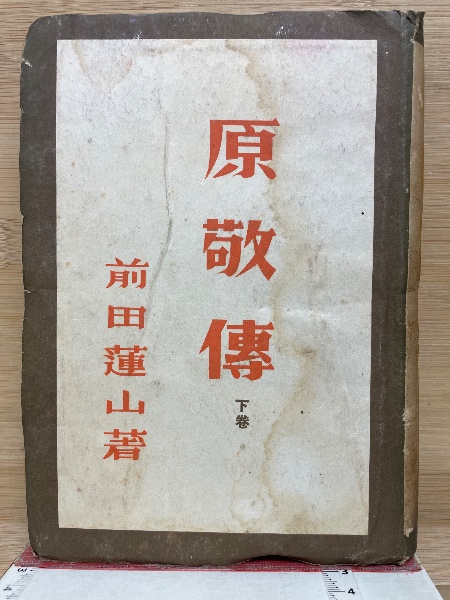 原敬傳
下卷
前田蓮山著
3
4